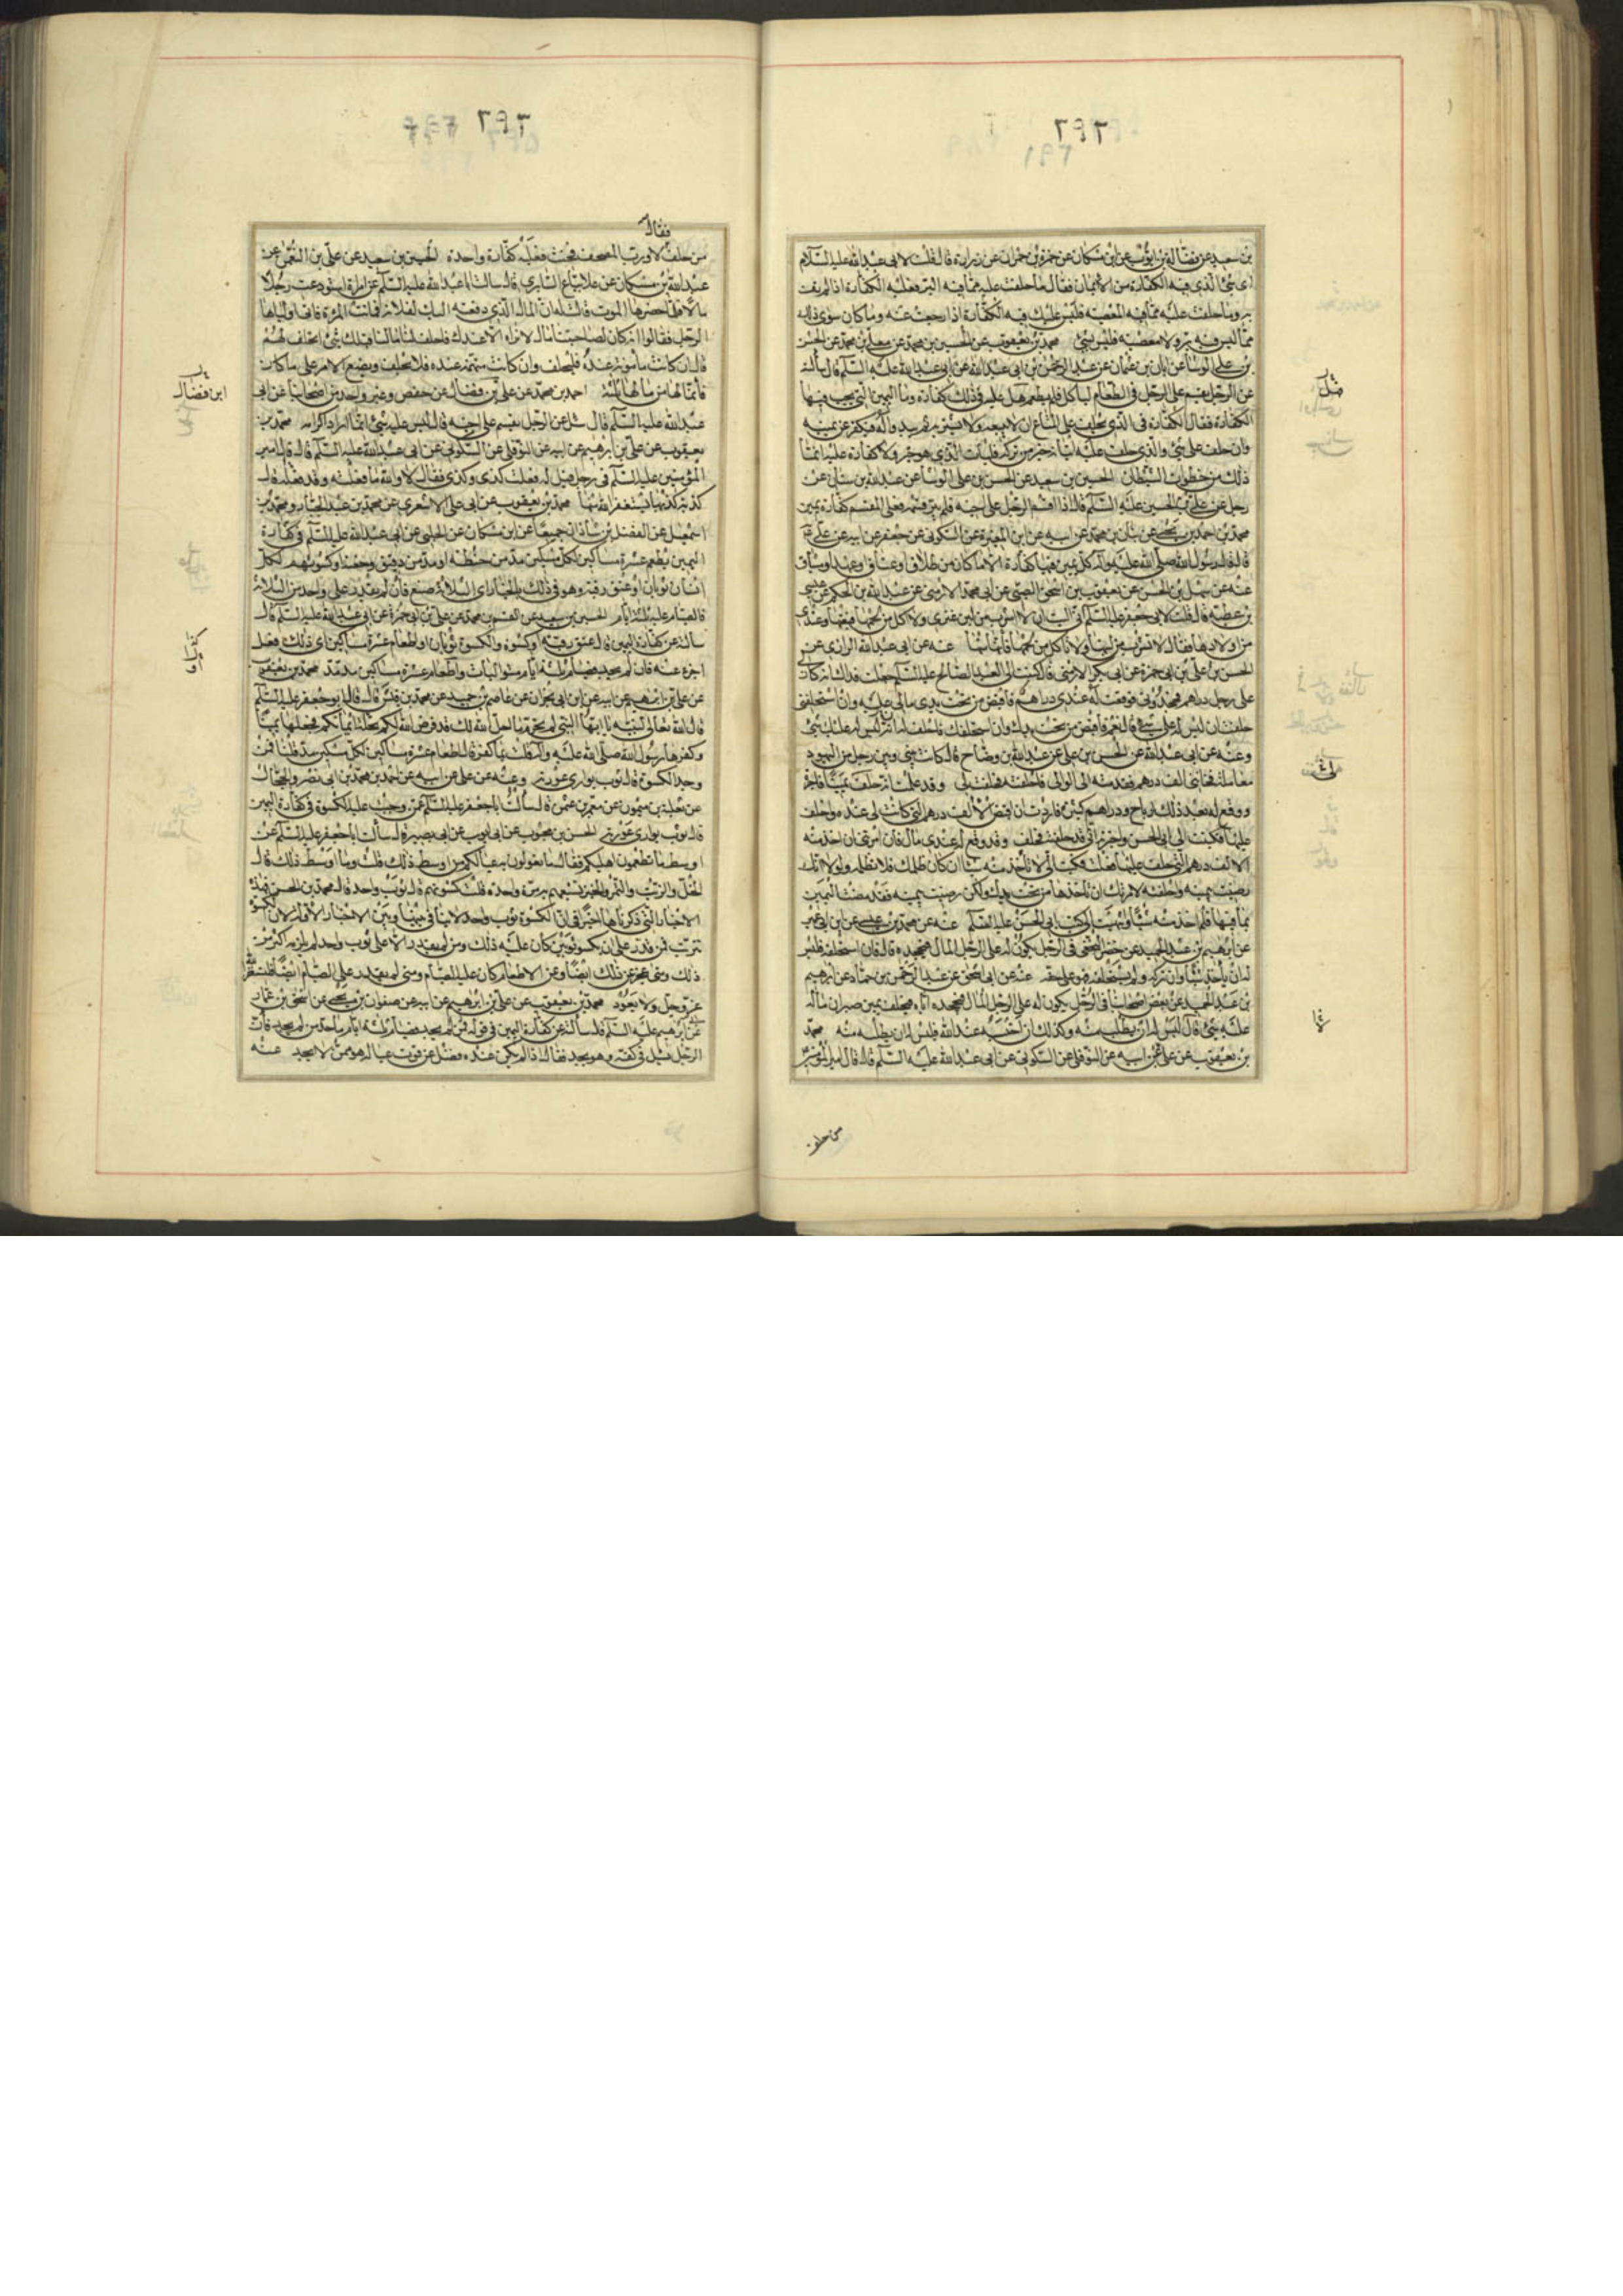 بن سعيد عن فضالة بن ايوب عن ابن مسكان عن حمزة بن حمران عن زرارة قال قلت لابى عبد الله عليه السلام
اى شئ الذى فيه الكفارة من الايمان فقال ما حلفت عليه مما فيه البر فعليه الكفارة اذا لم تف
به وما حلفت عليه مما فيه المعصية فليس عليك فيه الكفارة اذا رجعت عنه وما كان سوى ذلك
مما ليس فيه بر ولا معصية فليس بشئ محمد بن يعقوب عن الحسين بن محمد عن معلى بن محمد عن الحسن
بن على الوشا عن ابان بن عثمان عن عبد الرحمن بن ابى عبد الله عن ابى عبد الله عليه السلم قال سالته
عن الرجل يقسم على الرجل فى الطعام لياكل فلم يطعم هل عليه فى ذلك كفارة وما اليمين التى يجب فيها
الكفارة فقال الكفارة فى الذى يحلف على المتاع ان لا يبيعه ولا يشتريه ثم يبدو له فيكفر عن يمينه
وان حلف على شئ والذى حلف عليه اتيانه خير من تركه فليات الذى هو خير ولا كفارة عليه انما
ذلك من خطوات الشيطان الحسين بن سعيد عن الحسن بن على الوشا عن عبد الله بن سنان عن
رجل عن على بن الحسين عليه السلم قال اذا اقسم الرجل على اخيه فلم يبر قسمه فعلى المقسم كفارة يمين
محمد بن احمد بن يحيى عن بنان بن محمد عن ابيه عن ابن المغيرة عن السكونى عن جعفر عن ابيه عن على ع
قال قال رسول الله صلى الله عليه وآله كل يمين فيها كفارة الا ما كان من طلاق او عتاق او عهد او ميثاق
عنه عن سهل بن الحسن عن يعقوب بن اسحق الضبى عن ابى محمد الارمنى عن عبد الله بن الحكم عن عيسى
بن عطية قال قلت لابى جعفر عليه السلم انى اليت ان لا اشرب من لبن عنزى ولا اكل من لحمها فبعتها وعندى
من اولادها فقال لا تشرب من لبنها ولا تاكل من لحمها فانها منها عنه عن ابى عبد الله الرازى عن
الحسن بن على بن ابى حمزة عن ابى بكر الارمنى قال كتبت الى العبد الصالح عليه السلم جعلت فداك انه كان لى
على رجل دراهم فجحدنى فوقعت له عندى دراهم فاقبض من تحت يدى مالى عليه وان استحلفنى
حلفت ان ليس له على شئ قال نعم فاقبض من تحت يدك وان استحلفك فاحلف له انه ليس له عليك شئ
وعنه عن ابى عبد الله عن الحسن بن على عن عبد الله بن وضاح قال كانت بينى وبين رجل من اليهود
معاملة فخاننى الف درهم فقدمته الى الوالى فاحلفته فحلف لى وقد علمت انه حلف يمينا فاجرة
ووقع له بعد ذلك ارباح ودراهم كثيرة فاردت ان اقبض الالف درهم التى كانت لى عنده وحلف
عليها فكتبت الى ابى الحسن واخبرته انى قد حلفته فحلف وقد وقع له عندى مال فان امرتنى ان اخذ منه
الالف درهم التى حلف عليها فعلت فكتب الى لا تاخذ منه شيئا ان كان ظلمك فلا تظلمه ولولا انك
رضيت بيمينه واحلفته لامرتك ان تاخذها من تحت يدك ولكن رضيت بيمينه فقد مضت اليمين
بما فيها فلم اخذ منه شيئا وانتهيت الى كتاب ابى الحسن عليه السلم عنه عن محمد بن عيسى عن ابن ابى عمير
عن ابرهيم بن عبد الحميد عن خضر النخعى فى الرجل يكون له على الرجل المال فيجحده قال فان استحلفه فليس
له ان ياخذ شيئا وان تركه ولم يستحلفه فهو على حقه عنه عن ابى اسحق عن عبد الرحمن بن حماد عن ابرهيم
بن عبد الحميد عن بعض اصحابنا فى الرجل يكون له على الرجل المال فيجحده اياه فيحلف يمين صبر ان ماله
عليه شئ قال ليس له ان يطلب منه وكذلك ان احتسبه عند الله فليس له ان يطلبه منه محمد
بن يعقوب عن على عن ابيه عن النوفلى عن السكونى عن ابى عبد الله عليه السلم قال قال امير المؤمنين
من حلف
فقال
من حلف لا ورب المصحف فحنث فعليه كفارة واحدة الحسين بن سعيد عن على بن النعمن عن
عبد الله بن مسكان عن علا بياع السابرى قال سالت ابا عبد الله عليه السلم عن امراة استودعت رجلا
مالا فلما حضرها الموت قالت له ان المال الذى دفعته اليك لفلانة فماتت المرءة فاتى اولياها
الرجل فقالوا انه كان لصاحبتنا مال لا نراه الا عندك فاحلف لنا ما لنا قبلك شئ ايحلف لهم
قال ان كانت مامونة عنده فليحلف وان كانت متهمة عنده فلا يحلف ويضع الامر على ما كان
فانما لها من مالها ثلثه احمد بن محمد عن على بن فضال عن حفص وغير واحد من اصحابنا عن ابى
عبد الله عليه السلم قال سئل عن الرجل يقسم على اخيه قال ليس عليه شئ انما اراد اكرامه محمد بن
يعقوب عن على بن ابرهيم عن ابيه عن النوفلى عن السكونى عن ابى عبد الله عليه السلم قال قال امير
المؤمنين عليه السلم فى رجل قيل له فعلت كذى وكذى فقال لا والله ما فعلته وقد فعله قال
كذبة كذبها يستغفر الله منها محمد بن يعقوب عن ابى على الاشعرى عن محمد بن عبد الجبار ومحمد بن
اسمعيل عن الفضل بن شاذان جميعا عن ابن مسكان عن الحلبى عن ابى عبد الله عليه السلم فى كفارة
اليمين يطعم عشرة مساكين لكل مسكين مد من حنطة او مد من دقيق وحفنة او كسوتهم لكل
انسان ثوبان او عتق رقبة وهو فى ذلك بالخيار اى الثلاثة صنع فان لم يقدر على واحد من الثلاثة
فالصيام عليه ثلثة ايام الحسين بن سعيد عن القسم بن محمد عن على بن ابى حمزة عن ابى عبد الله عليه السلم قال
سالته عن كفارة اليمين قال عتق رقبة او كسوة والكسوة ثوبان او اطعام عشرة مساكين اى ذلك فعل
اجزء عنه فان لم يجد فصيام ثلثة ايام متواليات واطعام عشرة مساكين مد مد محمد بن يعقوب
عن على بن ابرهيم عن ابيه عن ابن ابى نجران عن عاصم بن حميد عن محمد بن قيس قال قال ابو جعفر عليه السلم
قال الله تعالى لنبيه يا ايها النبى لم تحرم ما احل الله لك قد فرض الله لكم تحلة ايمانكم فجعلها يمينا
وكفرها رسول الله صلى الله عليه وآله قلت بما كفر قال اطعام عشرة مساكين لكل مسكين مد قلنا فمن
وجد الكسوة قال ثوب يوارى عورته وعنه عن على عن ابيه عن احمد بن محمد بن ابى نصر والحجال
عن ثعلبة بن ميمون عن معمر بن عثمن قال سالت ابا جعفر عليه السلم عمن وجبت عليه الكسوة فى كفارة اليمين
قال ثوب يوارى عورته الحسن بن محبوب عن ابى ايوب عن ابى بصير قال سالت ابا جعفر عليه السلم عن
اوسط ما تطعمون اهليكم فقال ما تعولون به عيالكم من اوسط ذلك قلت وما اوسط ذلك قال
الخل والزيت والتمر والخبز تشبعهم به مرة واحدة قلت كسوتهم قال ثوب واحد قال محمد بن الحسن فهذه
الاخبار التى ذكرناها اخيرا فى ان الكسوة ثوب واحد لا ينافى بينها وبين الاخبار الاولة لان الكسوة
تترتب فمن قدر على ان يكسو ثوبين كان عليه ذلك ومن لم يقدر الا على ثوب واحد لم يلزمه اكثر من
ذلك ومتى عجز عن ذلك ايضا وعن الاطعام كان عليه الصيام ومتى لم يقدر على الصيام ايضا فليستغفر الله
عز وجل ولا يعود محمد بن يعقوب عن على بن ابرهيم عن ابيه عن صفوان بن يحيى عن اسحق بن عمار
عن ابى ابرهيم عليه السلم قال سالته عن كفارة اليمين فى قوله فمن لم يجد فصيام ثلثة ايام ما حد من لم يجد فان
الرجل يسئل فى كفه وهو يجد فقال اذا لم يكن عنده فضل عن قوت عياله فهو ممن لا يجد عنه
ابن فضال